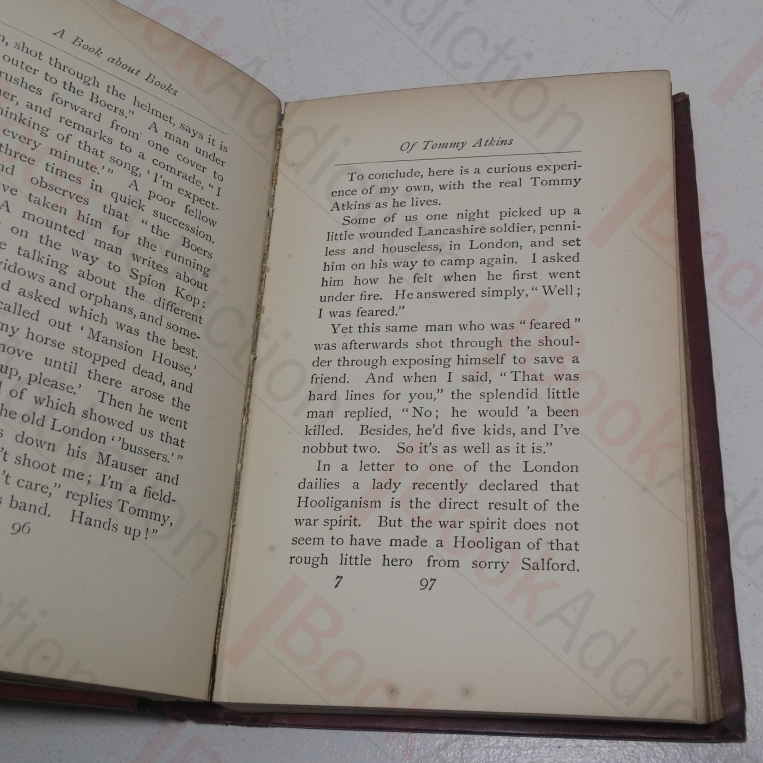 A Book about Books
shot through the helmet, says it is
outer to the Boers." A man under
rushes forward from one cover to
and remarks to a comrade, "I
thinking of that song, 'I'm expect-
every minute.'" A poor fellow
three times in quick succession,
observes that "the Boers
have taken him for the running
A mounted man writes about
on the way to Spion Kop:
talking about the different
widows and orphans, and some-
asked which was the best.
called out 'Mansion House,'
my horse stopped dead, and
move until there arose the
up, please.' Then he went
of which showed us that
the old London ''bussers.'"
down his Mauser and
shoot me; I'm a field-
care," replies Tommy,
band. Hands up!"
96
Of Tommy Atkins
To conclude, here is a curious experi-
ence of my own, with the real Tommy
Atkins as he lives.
Some of us one night picked up a
little wounded Lancashire soldier, penni-
less and houseless, in London, and set
him on his way to camp again. I asked
him how he felt when he first went
under fire. He answered simply, "Well;
I was feared."
Yet this same man who was "feared"
was afterwards shot through the shoul-
der through exposing himself to save a
friend. And when I said, "That was
hard lines for you," the splendid little
man replied, "No; he would 'a been
killed. Besides, he'd five kids, and I've
nobbut two. So it's as well as it is."
In a letter to one of the London
dailies a lady recently declared that
Hooliganism is the direct result of the
war spirit. But the war spirit does not
seem to have made a Hooligan of that
rough little hero from sorry Salford.
7 97
BookAddiction